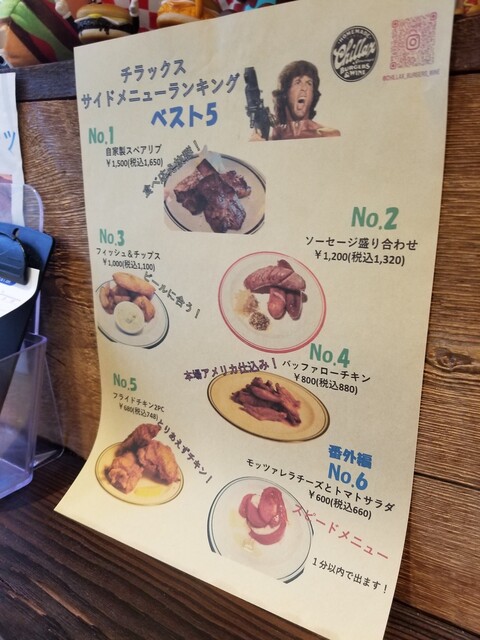 チラックス
サイドメニューランキング
ベスト5
HOMEMADE
Chillax
BURGERS
& WINE
@CHILLAX_BURGERS_WINE
No.1
自家製スペアリブ
¥1,500(税込1,650)
No.2
ソーセージ盛り合わせ
¥1,200(税込1,320)
No.3
フィッシュ&チップス
¥1,000(税込1,100)
ビールに合う!
No.4
バッファローチキン
¥800(税込880)
本場アメリカ仕込み!
No.5
フライドチキン2PC
¥680(税込748)
とりあえずチキン!
番外編
No.6
モッツァレラチーズとトマトサラダ
¥600(税込660)
スピードメニュー
1分以内で出ます!